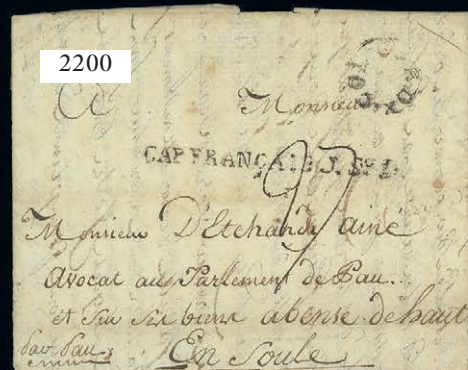 2200
COL
Monsieur
CAP FRANÇAIS J. S.
Monsieur D'Etchandy ainé
avocat au Parlement de Pau.
et en ses biens abense de haut
par Pau: En Soule